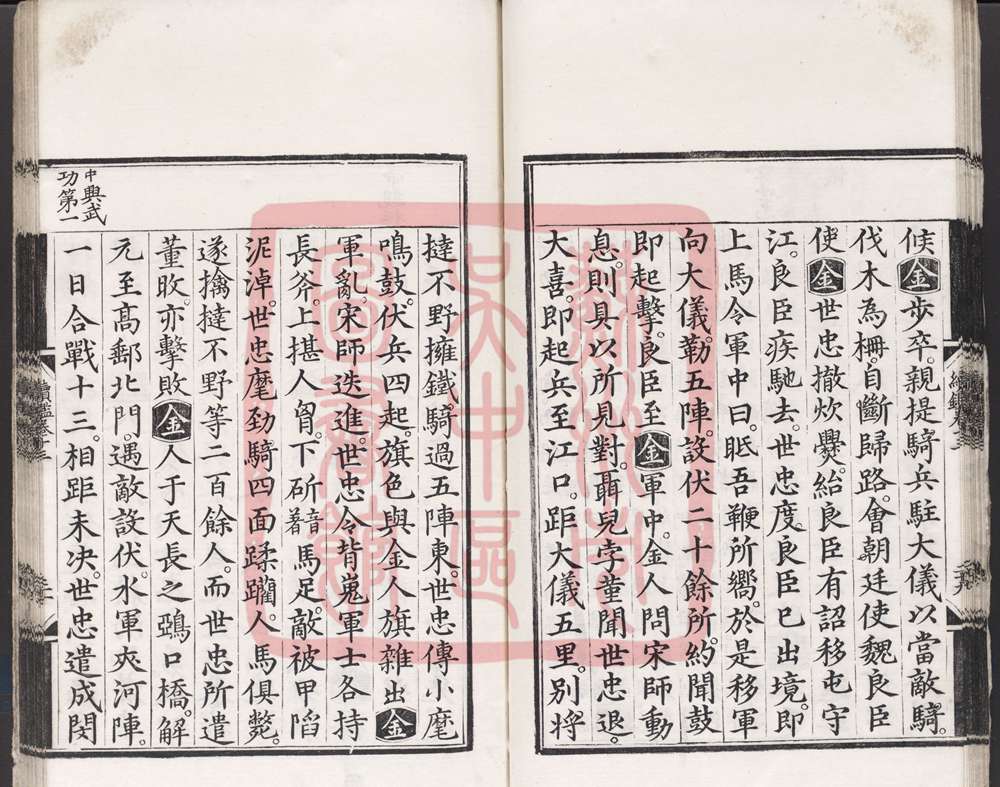 候金步卒。親提騎兵駐大儀以當敵騎。
伐木為柵。自斷歸路。會朝廷使魏良臣
使金世忠撤炊爨。紿良臣有詔移屯守
江。良臣疾馳去。世忠度良臣已出境。即
上馬令軍中曰。眂吾鞭所嚮。於是移軍
向大儀。勒五陣。設伏二十餘所。約聞鼓
即起擊。良臣至金軍中。金人問宋師動
息。則具以所見對。聶兒孛堇聞世忠退。
大喜。即起兵至江口。距大儀五里。別將
撻不野擁鐵騎。過五陣東。世忠傳小麾
鳴鼓。伏兵四起。旗色與金人旗雜出金
軍亂。宋師迭進。世忠令背嵬軍士各持
長斧。上揕人胷。下斫音蓍馬足。敵被甲陷
泥淖。世忠麾勁騎四面蹂躪。人馬俱斃。
遂擒撻不野等二百餘人。而世忠所遣
董旼。亦擊敗金人于天長之鵶口橋。解
元至高郵北門。遇敵設伏。水軍夾河陣。
一日合戰十三。相距未決。世忠遣成閔
中興武
功第一
續鑑卷十三